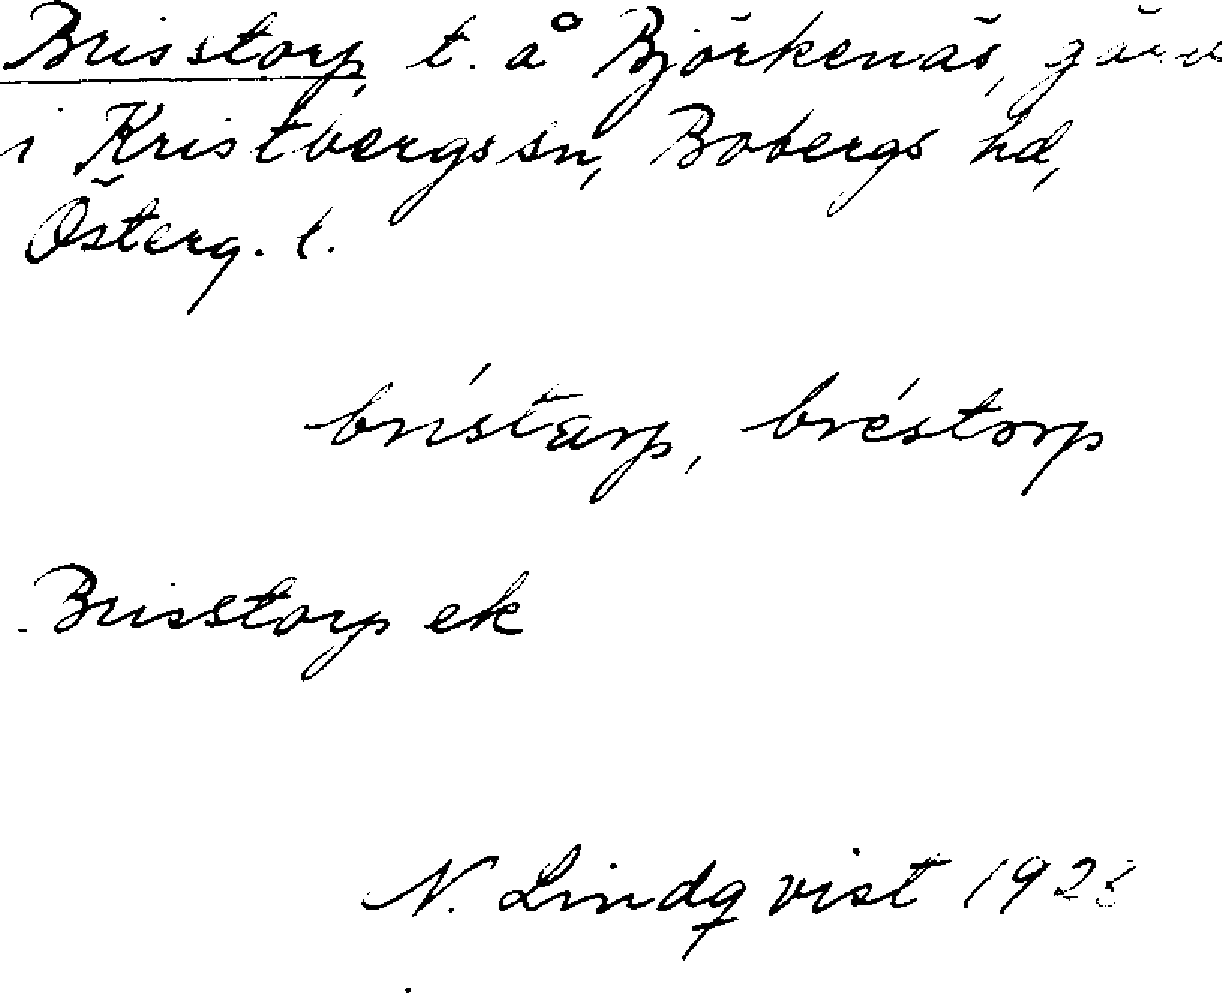 Brisstorp, t. å Björkenäs, gård
i Kristbergs sn, Bobergs hd,
Österg. l.
brístarp, bréstorp
Brisstorp ek
N. Lindqvist 1928